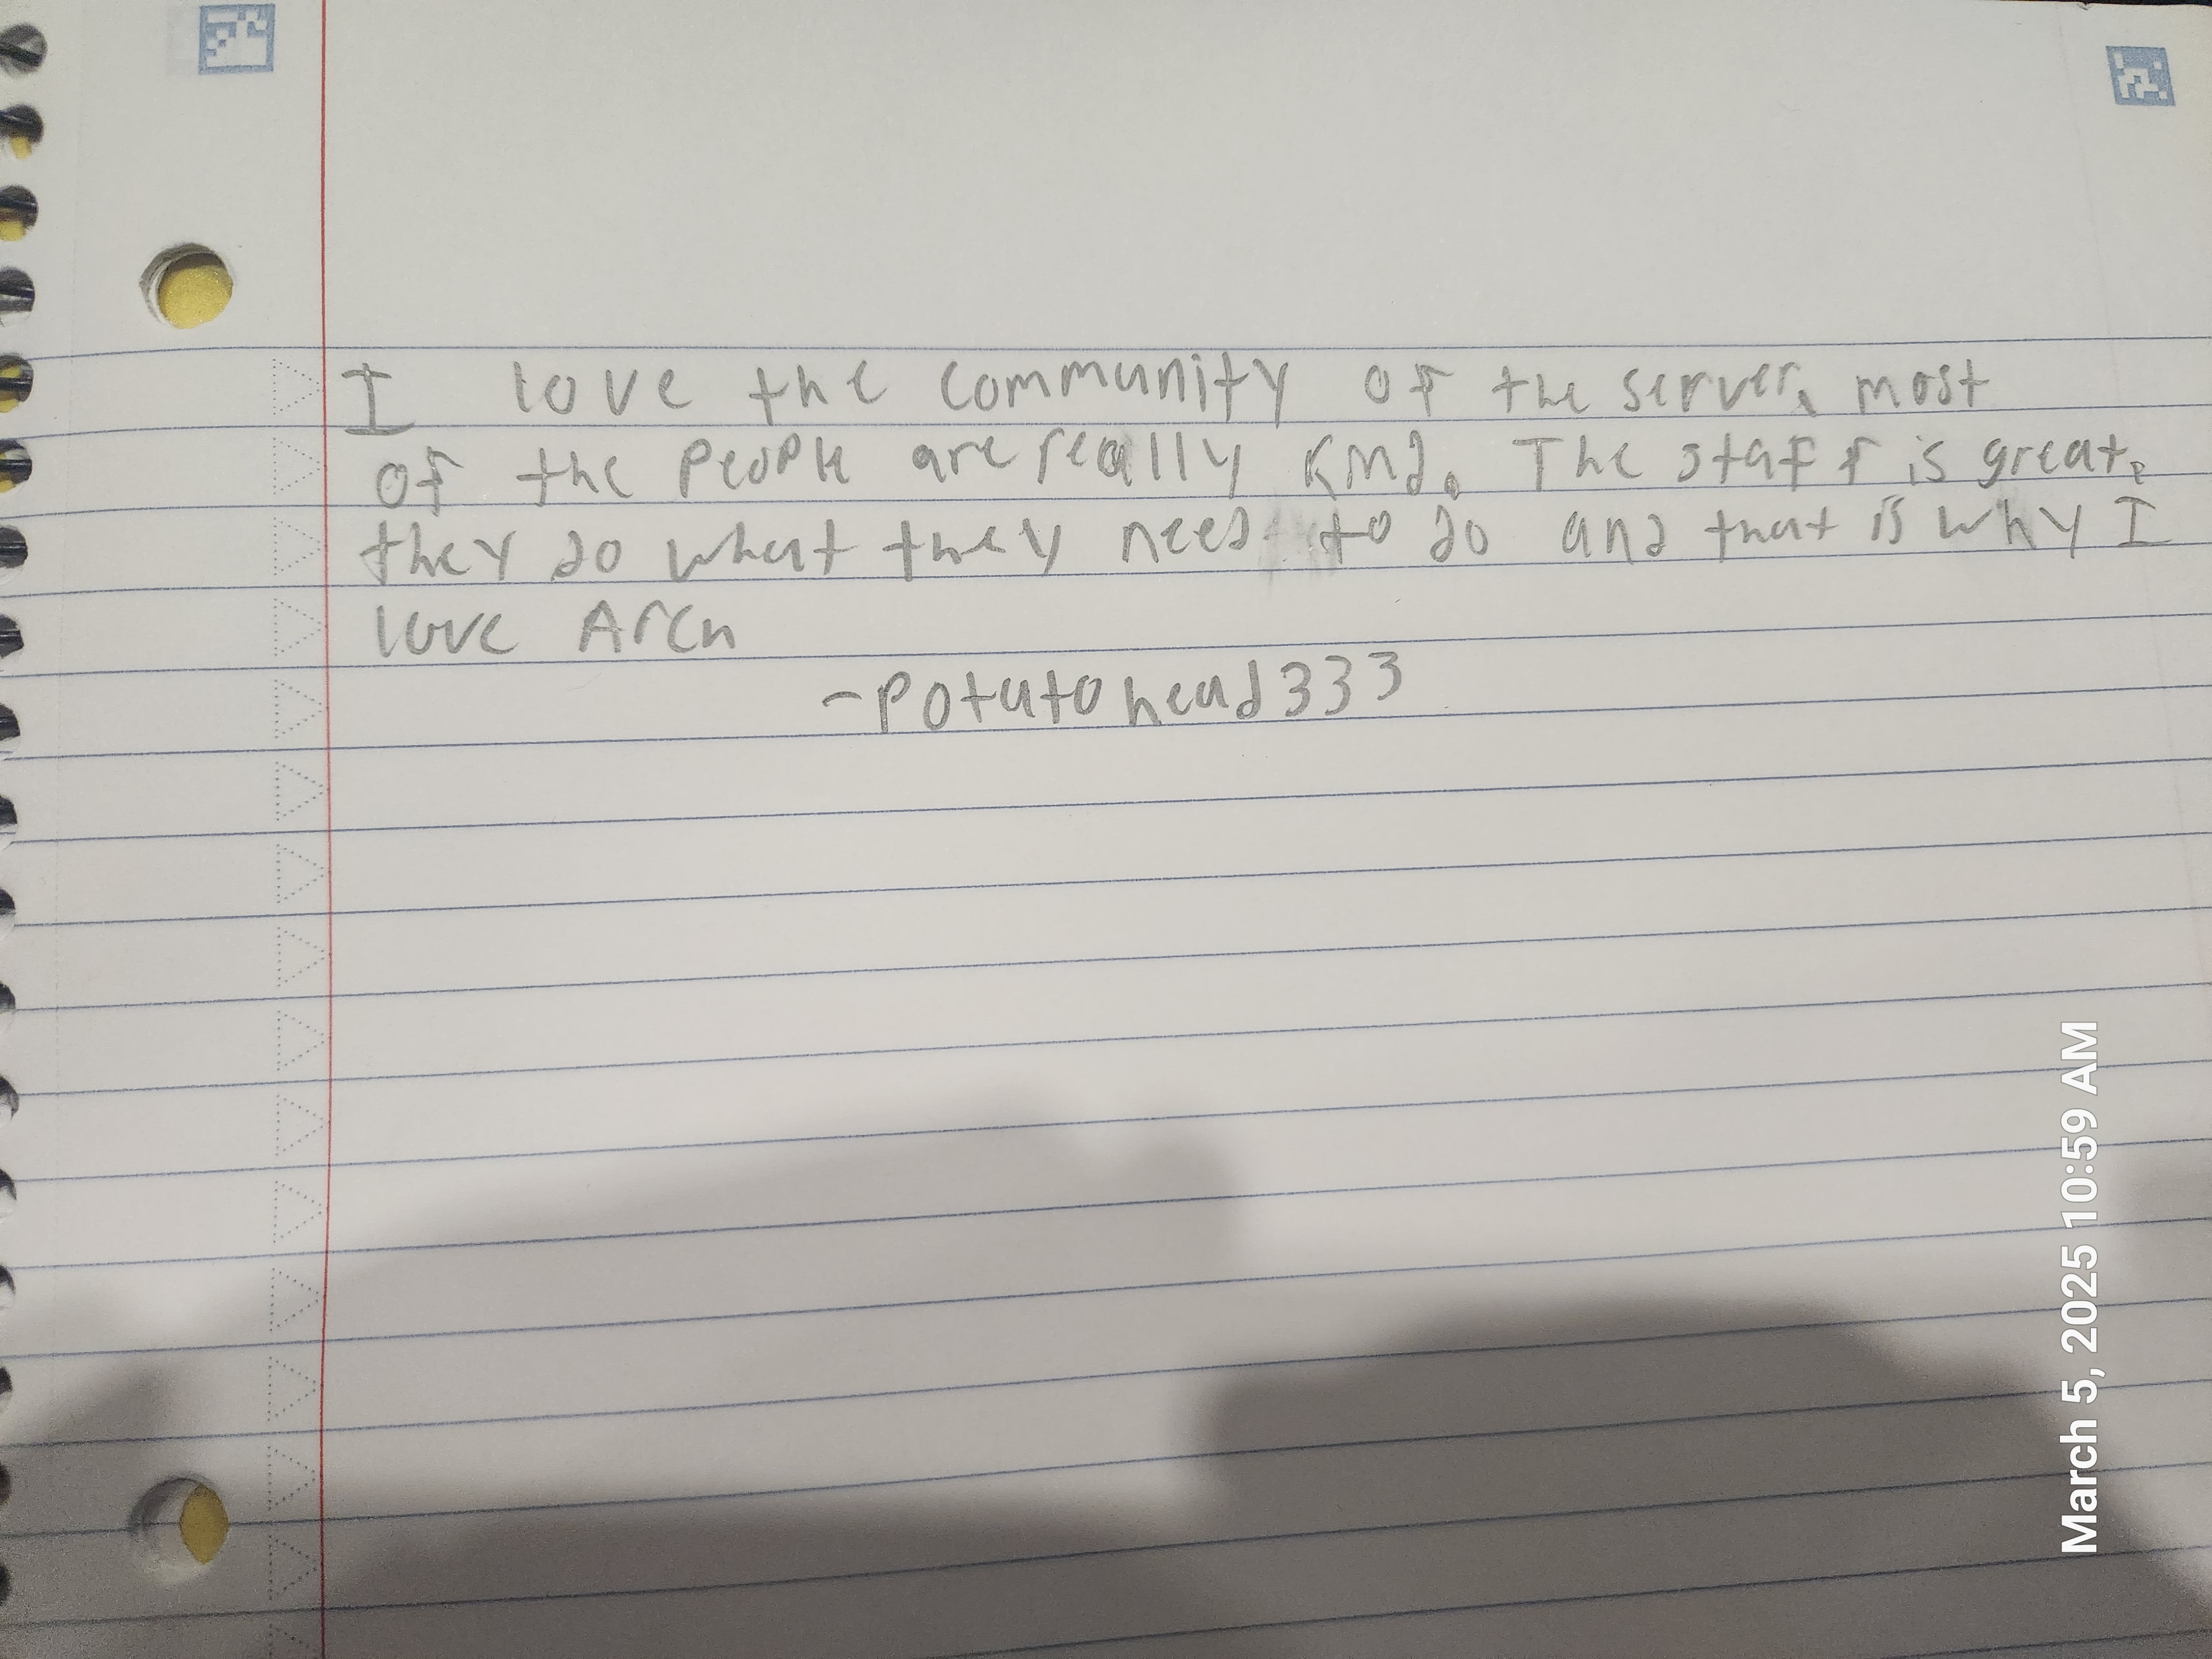 I love the community of the server, most
of the people are really kind. The staff is great,
they do what they need to do and that is why I
love Arch
-potatohead333
March 5, 2025 10:59 AM